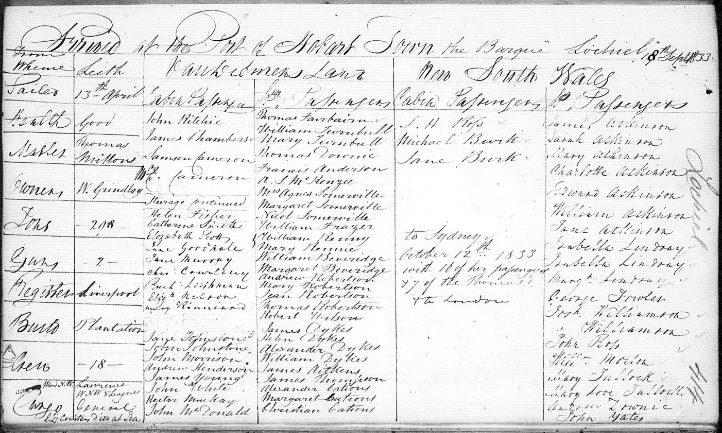 Arrived at the Port of Hobart Town the Barque Lochiel 18th Septr 1833
From Whence Leith
Sailed 15th April
Health Good
Master Thomas Mittons
Owners W. Grindlay
Tons - 298
Guns - 2 -
Register Liverpool
Built Plantation
Crew - 18 -
Cargo General
Died at Sea
Vandiemens Land
Cabin Passengers
John Ritchie
James Chambers
Samson Cameron
Mrs Cameron
Steerage continued
Helen Fisher
Catherine Smith
Elizabeth Scott
Jane Goodhale
Jane Murray
Chas Courtley
Buch Lishman
Eliza Neilson
Mary Kinniard
Jane Johnstone
John Johnstone
John Morrison
Andrew Henderson
James Young
John White
Hector MacKay
John McDonald
Do Passengers
Thomas Fairbairn
William Turnbull
Mary Turnbull
Thomas Downie
Francis Anderson
A. S. McKenzie
Mrs Agnes Somerville
Margaret Somerville
Nicol Somerville
William Frazer
William Kenny
Mary Rennie
William Beveridge
Margaret Beveridge
Andrew Robertson
Mary Robertson
Jean Robertson
Thomas Robertson
Robert Wilson
James Dykes
Helen Dykes
Alexander Dykes
William Dykes
James Aitkens
James Thompson
Alexander Cations
Margaret Cations
Christian Cations
New South Wales
Cabin Passengers
J. H. Ross
Michael Burk
Jane Burk
to Sydney
October 12th 1833
with 18 of her passengers
& 7 of the Thomas
& to London
Do Passengers
James Atkinson
Sarah Atkinson
Mary Atkinson
Charlotte Atkinson
Edward Atkinson
William Atkinson
Jane Atkinson
Isabella Lindsay
Isabella Lindsay
Margt Lindsay
George Fowler
Josh Williamson
" Williamson
John Ross
Willm Morton
Mary Tullock
Mary Love Tulloch
Andrew Downie
John Yates
Lochiel
44